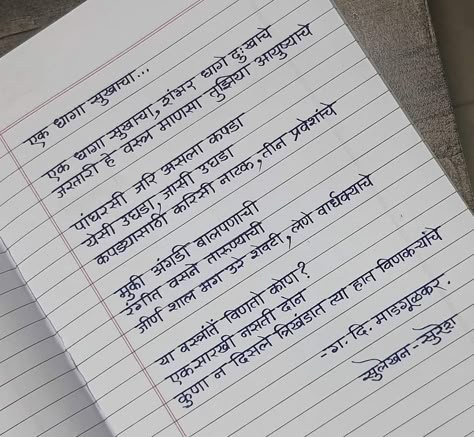 एक धागा सुखाचा...
एक धागा सुखाचा, शंभर धागे दुःखाचे
जरतारी हे वस्त्र माणसा तुझिया आयुष्याचे
पांघरसी जरि असला कपडा
येसी उघडा, जासी उघडा
कपड्यासाठी करिसी नाटक, तीन प्रवेशांचे
मुकी अंगडी बालपणाची
रंगीत वसने तारुण्याची
जीर्ण शाल मग उरे शेवटी, लेणे वार्धक्याचे
या वस्त्रांतें विणतो कोण?
एकसारखी नसती दोन
कुणा न दिसले त्रिखंडात त्या हात विणकऱ्यांचे
-ग. दि. माडगूळकर.
सुलेखन - सुरेश